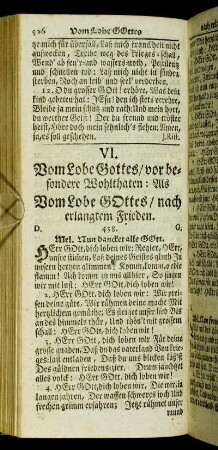 526 Vom Lobe GOttes
ze mich für überfall, Laß mich krankheit nicht
aufwecken, Treibe weg des krieges schall,
Wend' ab feu'r und wassers-noth, Pestilentz
und schnellen tod: Laß mich nicht in sünden
sterben, Noch an leib und seel' verderben.
12. O du grosser GOtt! erhöre, Was dein
kind gebeten hat: JEsu! den ich stets verehre,
Bleibe ja mein schutz und rath: Und mein hort,
du werther Geist! Der du freund und tröster
heist, Höre doch mein sehnlich's flehen: Amen,
ja, es soll geschehen. J. Rist.
VI.
Vom Lobe Gottes/ vor be-
sondere Wohlthaten: Als
Vom Lobe GOttes/ nach
erlangtem Frieden.
D. 438. G.
Mel. Nun dancket alle GOtt.
HErr GOtt, dich loben wir: Regier, HErr,
unsre stimen, Laß deines Geistes glut In
unsern hertzen glimmen:
wir mit lust: HErr GOtt, dich loben wir!
2. HErr GOtt, dich loben wir: Wir
preisen deine güte, Wir rühmen deine macht Mit
hertzlichem gemüthe; Es steiget unser lied Bis an
des himmels thür, Und thön't mit grossem
schall: HErr GOtt, dich loben wir!
3. HErr GOtt, dich loben wir Für deine
grosse gnaden, Daß du das vaterland Von krie-
ges-last entladen, Daß du uns blicken läß'st
Des güldnen friedens zier. Drum jauchtzet
alles volck: HErr GOtt, dich loben wir!
4. HErr GOtt, dich loben wir, Die wir, in
langen jahren, Der waffen schweres joch Und
frechen grimm erfahren; Jetzt rühmet unser
mund